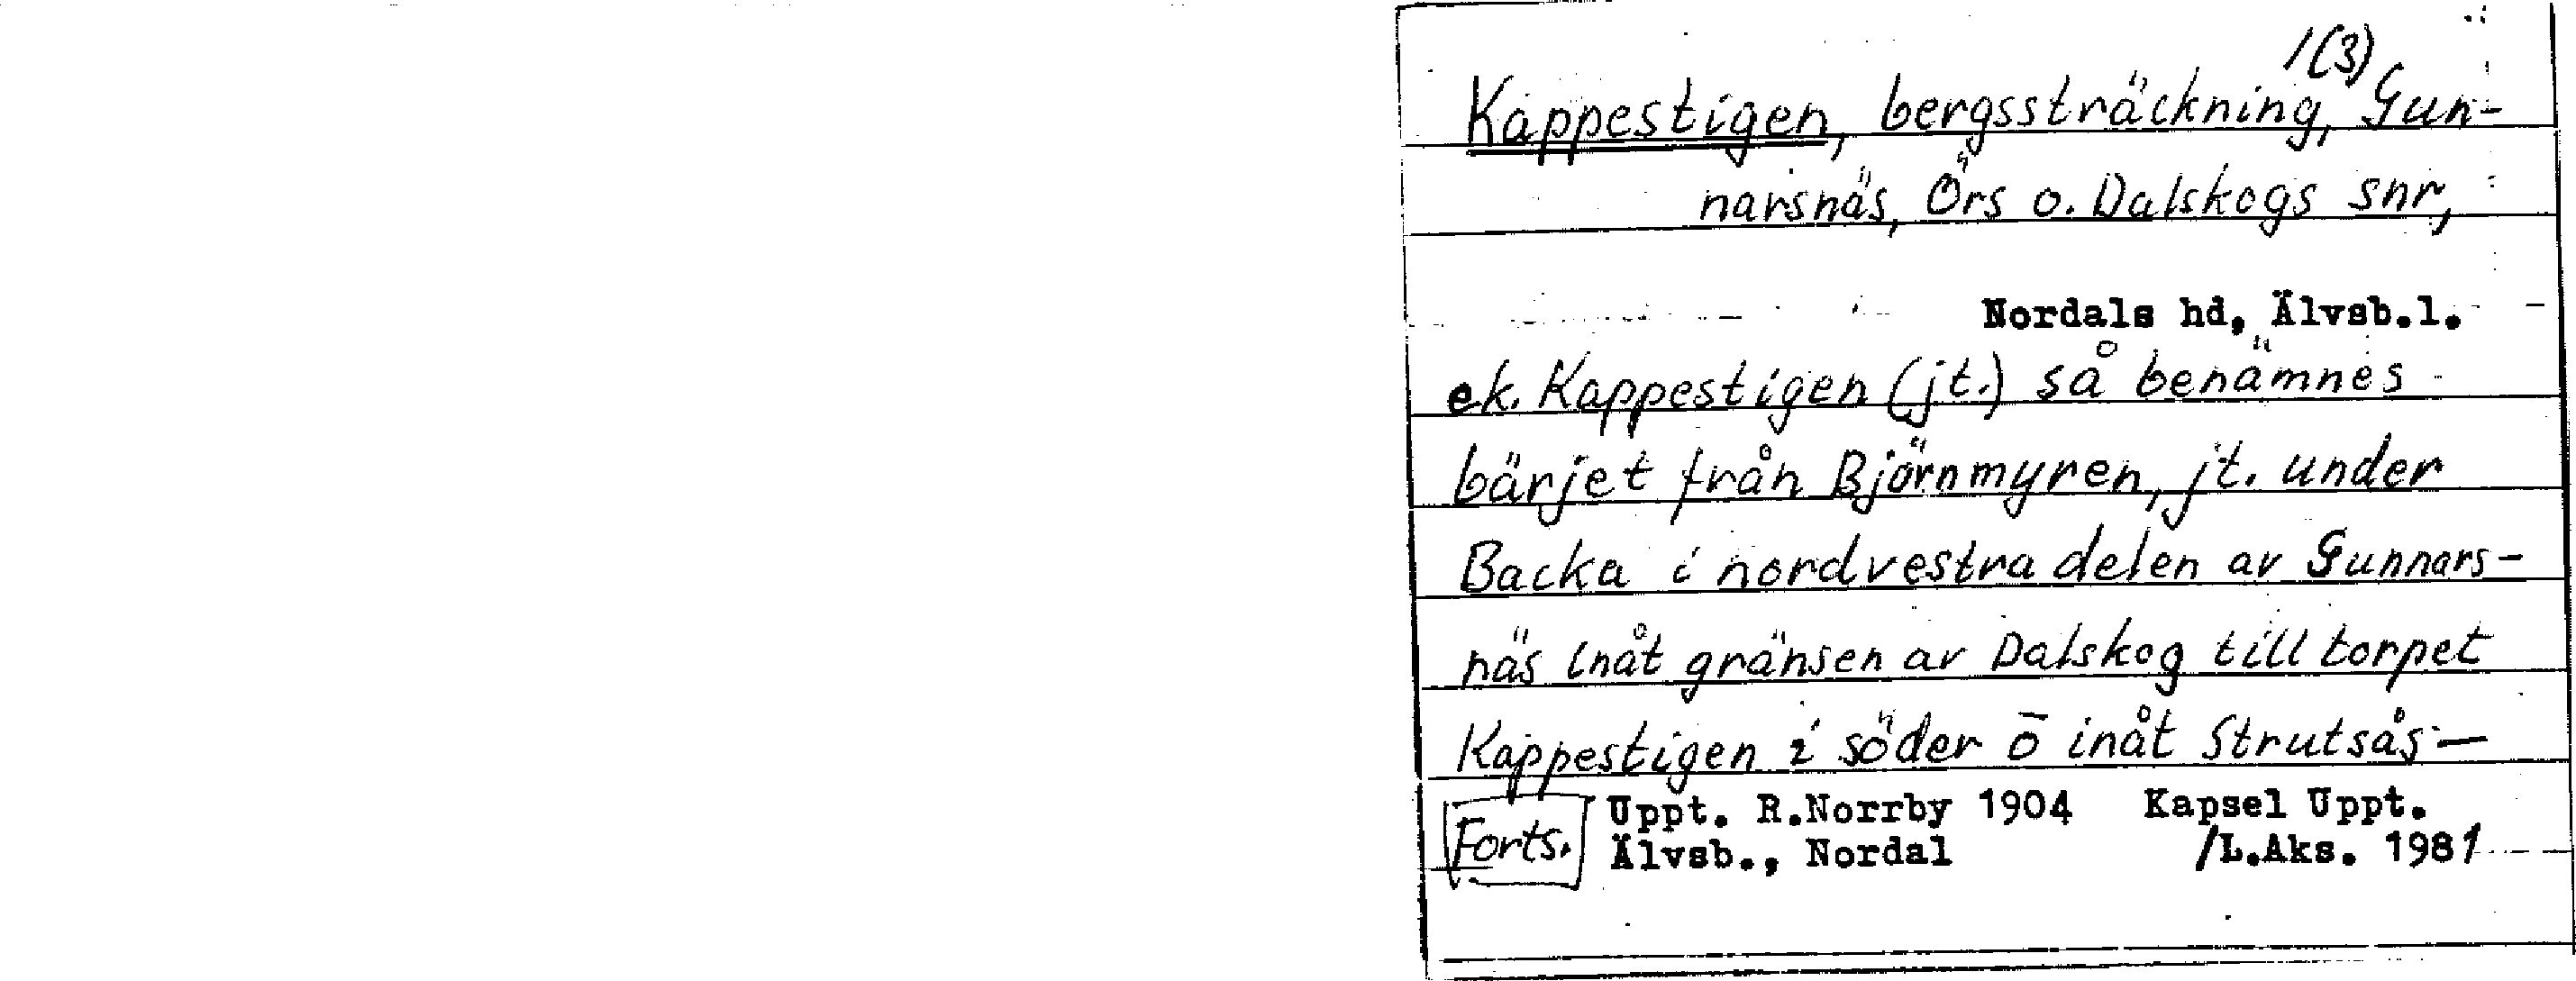 1(3)
Kappestigen, bergssträckning, Gun-
narsnäs, Örs o. Dalskogs snr,
Nordals hd, Älvsb.l.
ek. Kappestigen (jt.) så benämnes
bärjet från Björnmyren, jt. under
Backa i nordvestra delen av Gunnars-
näs inåt gränsen av Dalskog till torpet
Kappestigen i söder o̅ inåt Strutsås-
Forts. Uppt. R.Norrby 1904 Kapsel Uppt.
Älvsb., Nordal /L.Aks. 1981